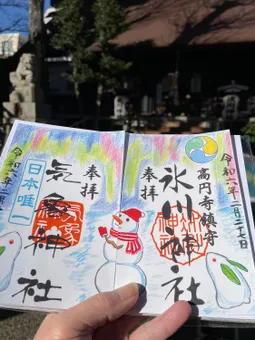 令和六年二月二十七日
高円寺鎮守
奉拝
氷川神社
奉拝
気象神社
日本唯一
令和六年二月